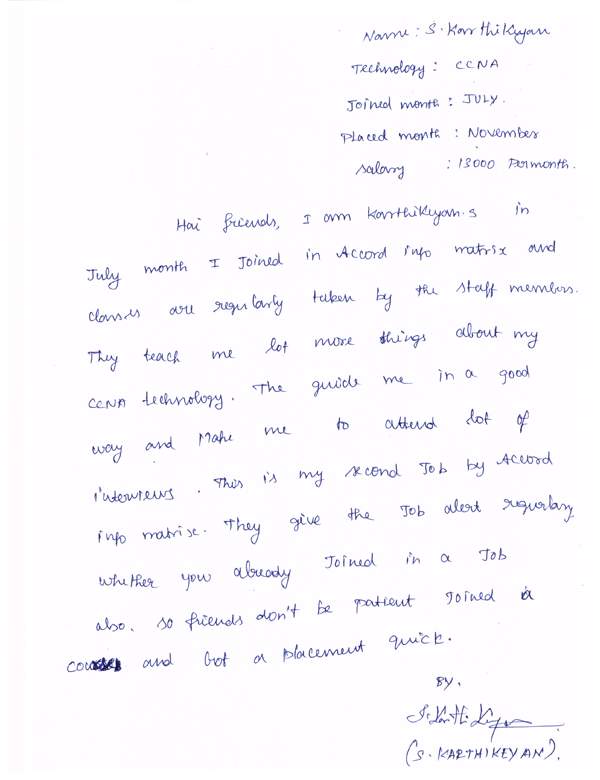 Name : S. Karthikeyan
Technology : CCNA
Joined month : JULY.
Placed month : November
Salary : 13000 Permonth.
Hai friends, I am Karthikeyan.s in
July month I Joined in Accord info matrix and
classes are regularly taken by the staff members.
They teach me lot more things about my
CCNA technology. The guide me in a good
way and Make me to attend lot of
interviews. This is my second Job by Accord
info matrix. They give the Job alert regurlary
whether you already Joined in a Job
also. so friends don't be patient Joined a
courses and Got a placement quick.
BY,
S. Karthikeyan
(S. KARTHIKEYAN).